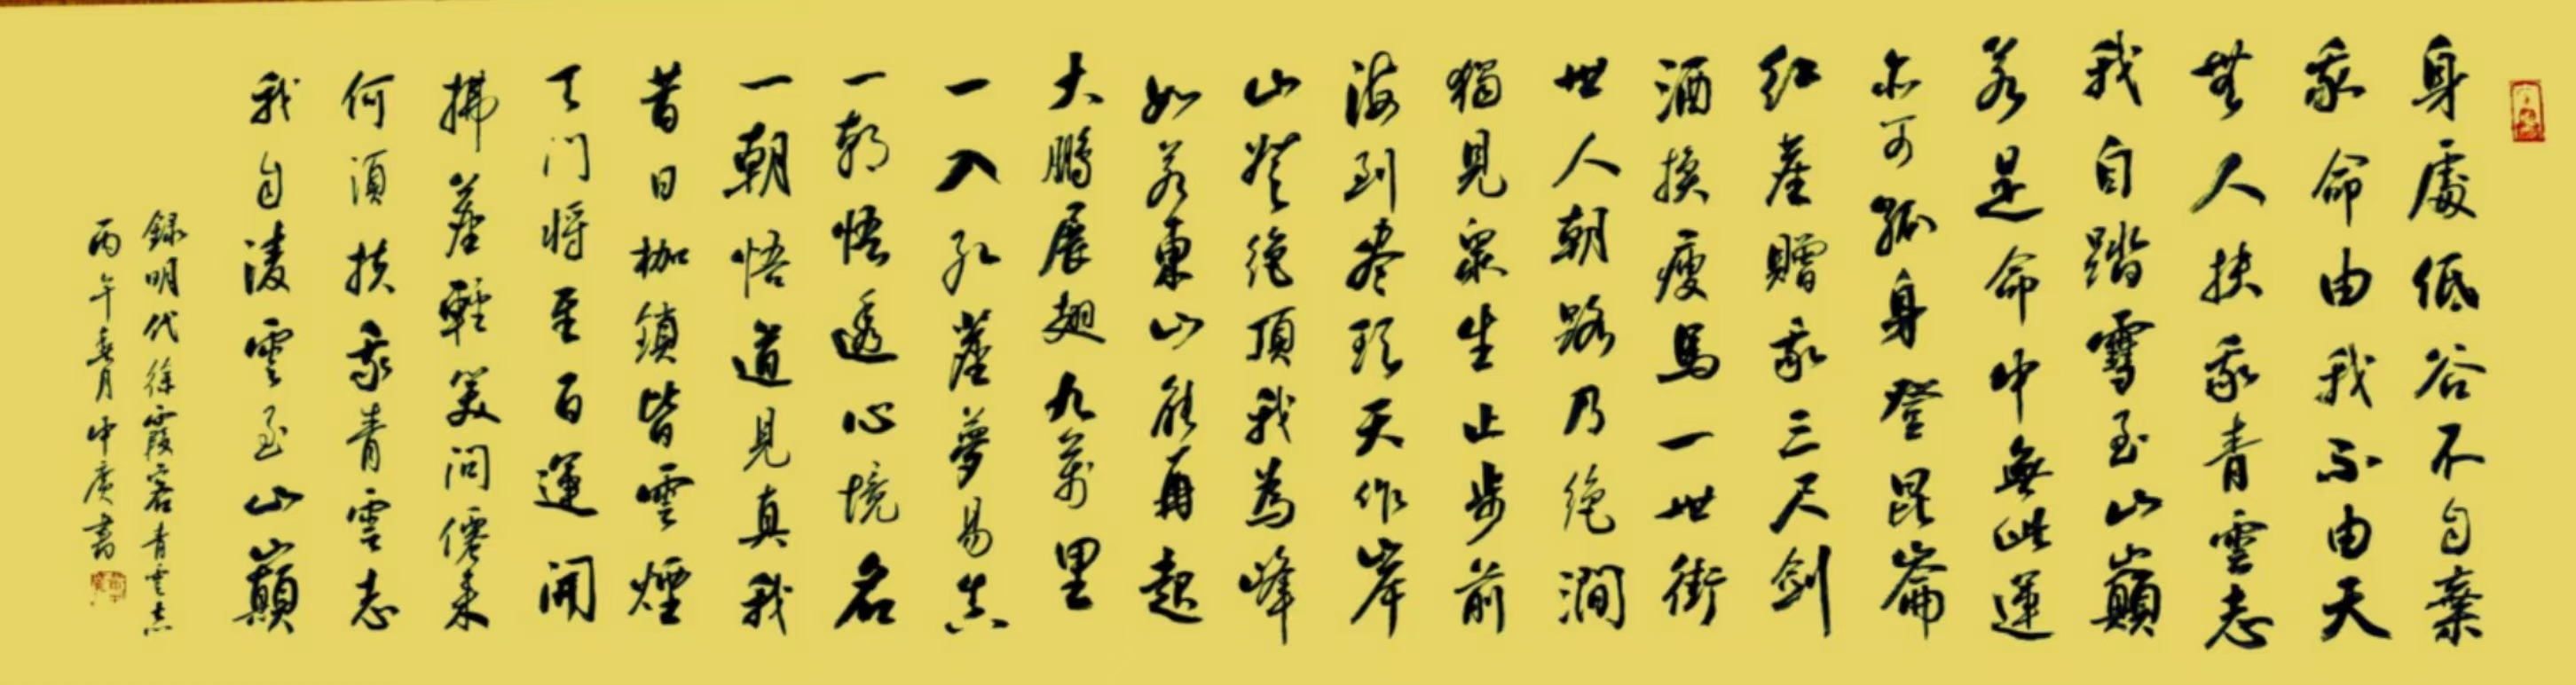 身處低谷不自棄
我命由我不由天
無人扶我青雲志
我自踏雪至山巔
若是命中無此運
亦可孤身登昆崙
红塵贈我三尺劍
酒換瘦馬一世街
世人朝路乃绝澗
獨見眾生止步前
海到盡頭天作岸
山登绝頂我為峰
如若東山能再起
大鵬展翅九萬里
一入红塵夢易真
一朝悟透心境名
一朝悟道見真我
昔日枷鎖皆雲煙
天門將至百運開
拂塵輕笑問僊來
何須扶我青雲志
我自淩雲至山巔
錄明代徐霞客青雲志
丙午春月中書